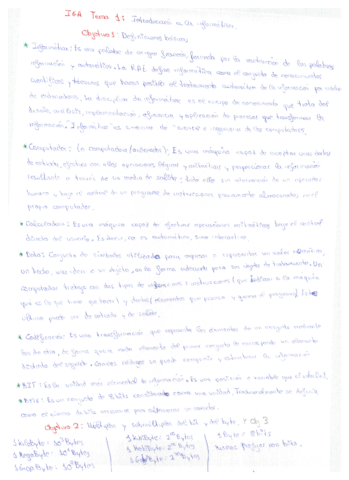 IGA Tema 1: Introducción a la informática.
Objetivo 1: Definiciones básicas.
* Informática: Es una palabra de origen francés formada por la contracción de las palabras
información y automática. La R.A.E. define informática como el conjunto de conocimientos
científicos y técnicas que hacen posible el tratamiento automático de la información por medio
de ordenadores. La disciplina de informática es el cuerpo de conocimiento que trata del
diseño, análisis, implementación, eficiencia y aplicación de procesos que transforman la
información. Informática es sinónimo de "ciencia e ingeniería de los computadores.
* Computador: (o computadora/ordenador). Es una máquina capaz de aceptar unos datos
de entrada, efectuar con ellos operaciones lógicas y aritméticas, y proporcionar la información
resultante a través de un medio de salida; todo ello sin intervención de un operador
humano y bajo el control de un programa de instrucciones previamente almacenado en el
propio computador.
* Calculadora: Es una máquina capaz de efectuar operaciones aritméticas bajo el control
directo del usuario. Es decir, no es automática, sino interactiva.
* Datos: Conjunto de símbolos utilizado para expresar o representar un valor numérico,
un hecho, una idea o un objeto; en la forma adecuada para ser objeto de tratamiento. Un
computador trabaja con dos tipos de información: instrucciones (que indican a la máquina
qué es lo que tiene que hacer) y datos (elementos que procesa y genera el programa). Este
último puede ser de entrada y de salida.
* Codificación: Es una transformación que representa los elementos de un conjunto mediante
los de otro, de forma que a cada elemento del primer conjunto le corresponde un elemento
distinto del segundo. Con los códigos se puede comprimir y estructurar la información
* BIT: Es la unidad más elemental de información. Es una posición o variable que el valor 0/1.
* Byte: Es un conjunto de 8 bits considerado como una unidad. Tradicionalmente se definía
como el número de bits necesarios para almacenar un carácter.
Objetivo 2: Múltiplos y submúltiplos del bit, del byte,
1 KiloByte = 10³ Bytes
1 KibiByte = 2¹⁰ Bytes
1 Byte = 8 bits
1 MegaByte = 10⁶ Bytes
1 MebiByte = 2²⁰ Bytes
1 GigaByte = 10⁹ Bytes
1 GibiByte = 2³⁰ Bytes